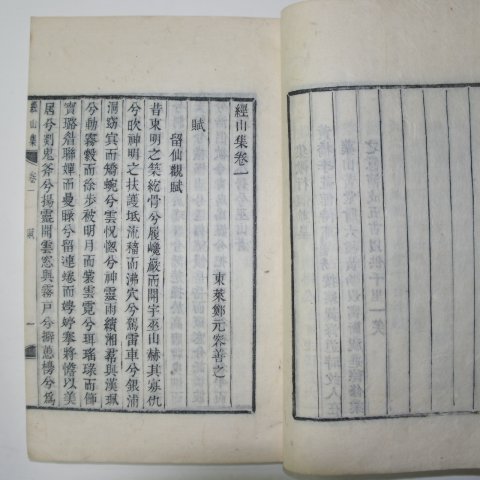 經山集卷一
東萊鄭元容善之
賦
留仙觀賦
昔東明之築紇骨兮履巉巖而開宇巫山赫其寡仇
兮欻神明之扶護坻流穭而沸穴兮駕雷車兮銀浦
洞窈冥而矯蜿兮雲怳惚兮神靈雨繽湘羣與漢珮
兮動霧縠而徐步被明月而裳雲霓兮珥瑤琭而飾
寶璐䌖聯嬋而曼睩兮留連蜷而婷塞將憺以美
居兮剡鬼斧兮揚靈開雲窓與霧戶兮擗蕙櫋兮爲
經山集
卷一
賦
一